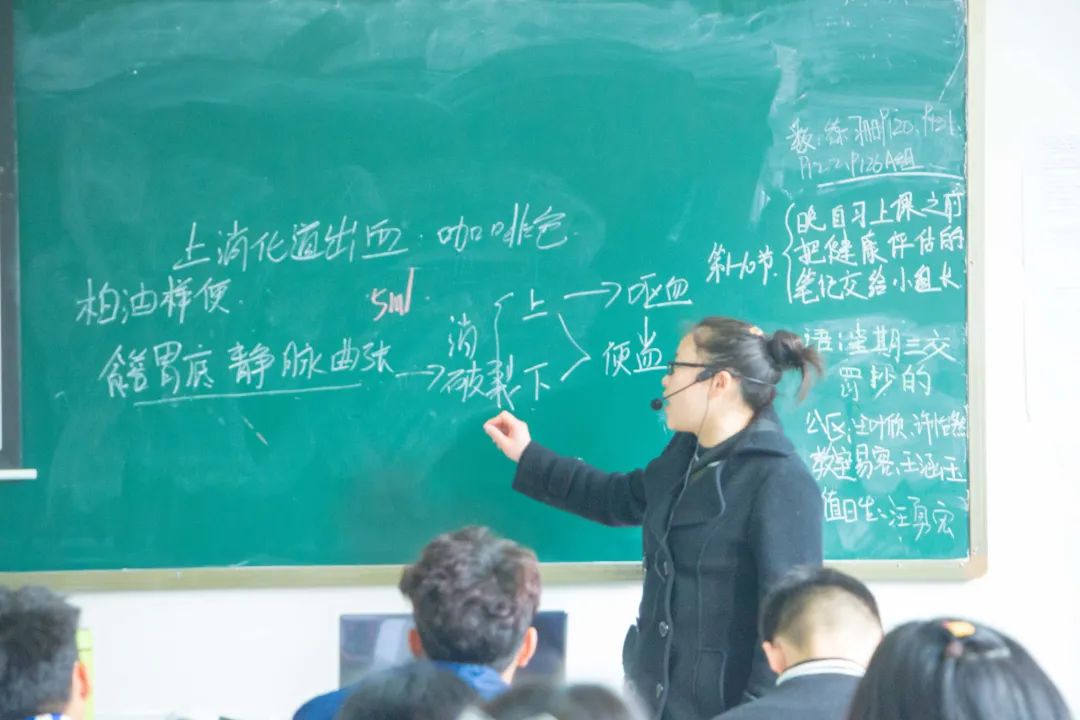 上消化道出血 咖啡色
柏油样便
5ml
食管胃底静脉曲张→
消 上 → 呕血
破裂 下 便血
数:练习册P120、P121、
P122、P126A组
第1-10节
晚自习上课之前
把健康评估的
笔记交给小组长
语:星期三交
罚抄的
公区:
教室:易容、王涵玉
值日生:汪勇宏